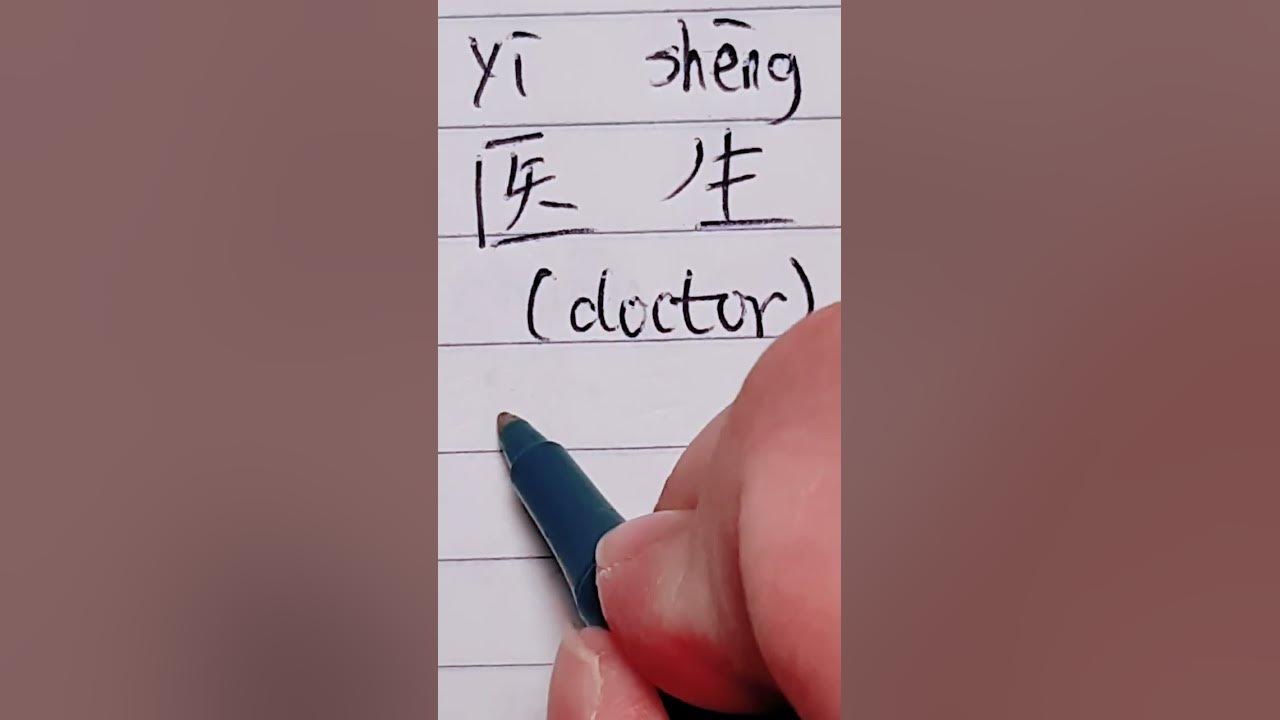 yī shēng
医 生
(doctor)